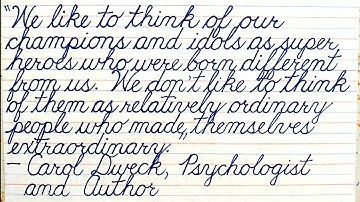 "We like to think of our
champions and idols as super
heroes who were born different
from us. We don't like to think
of them as relatively ordinary
people who made themselves
extraordinary."
- Carol Dweck, Psychologist
and Author